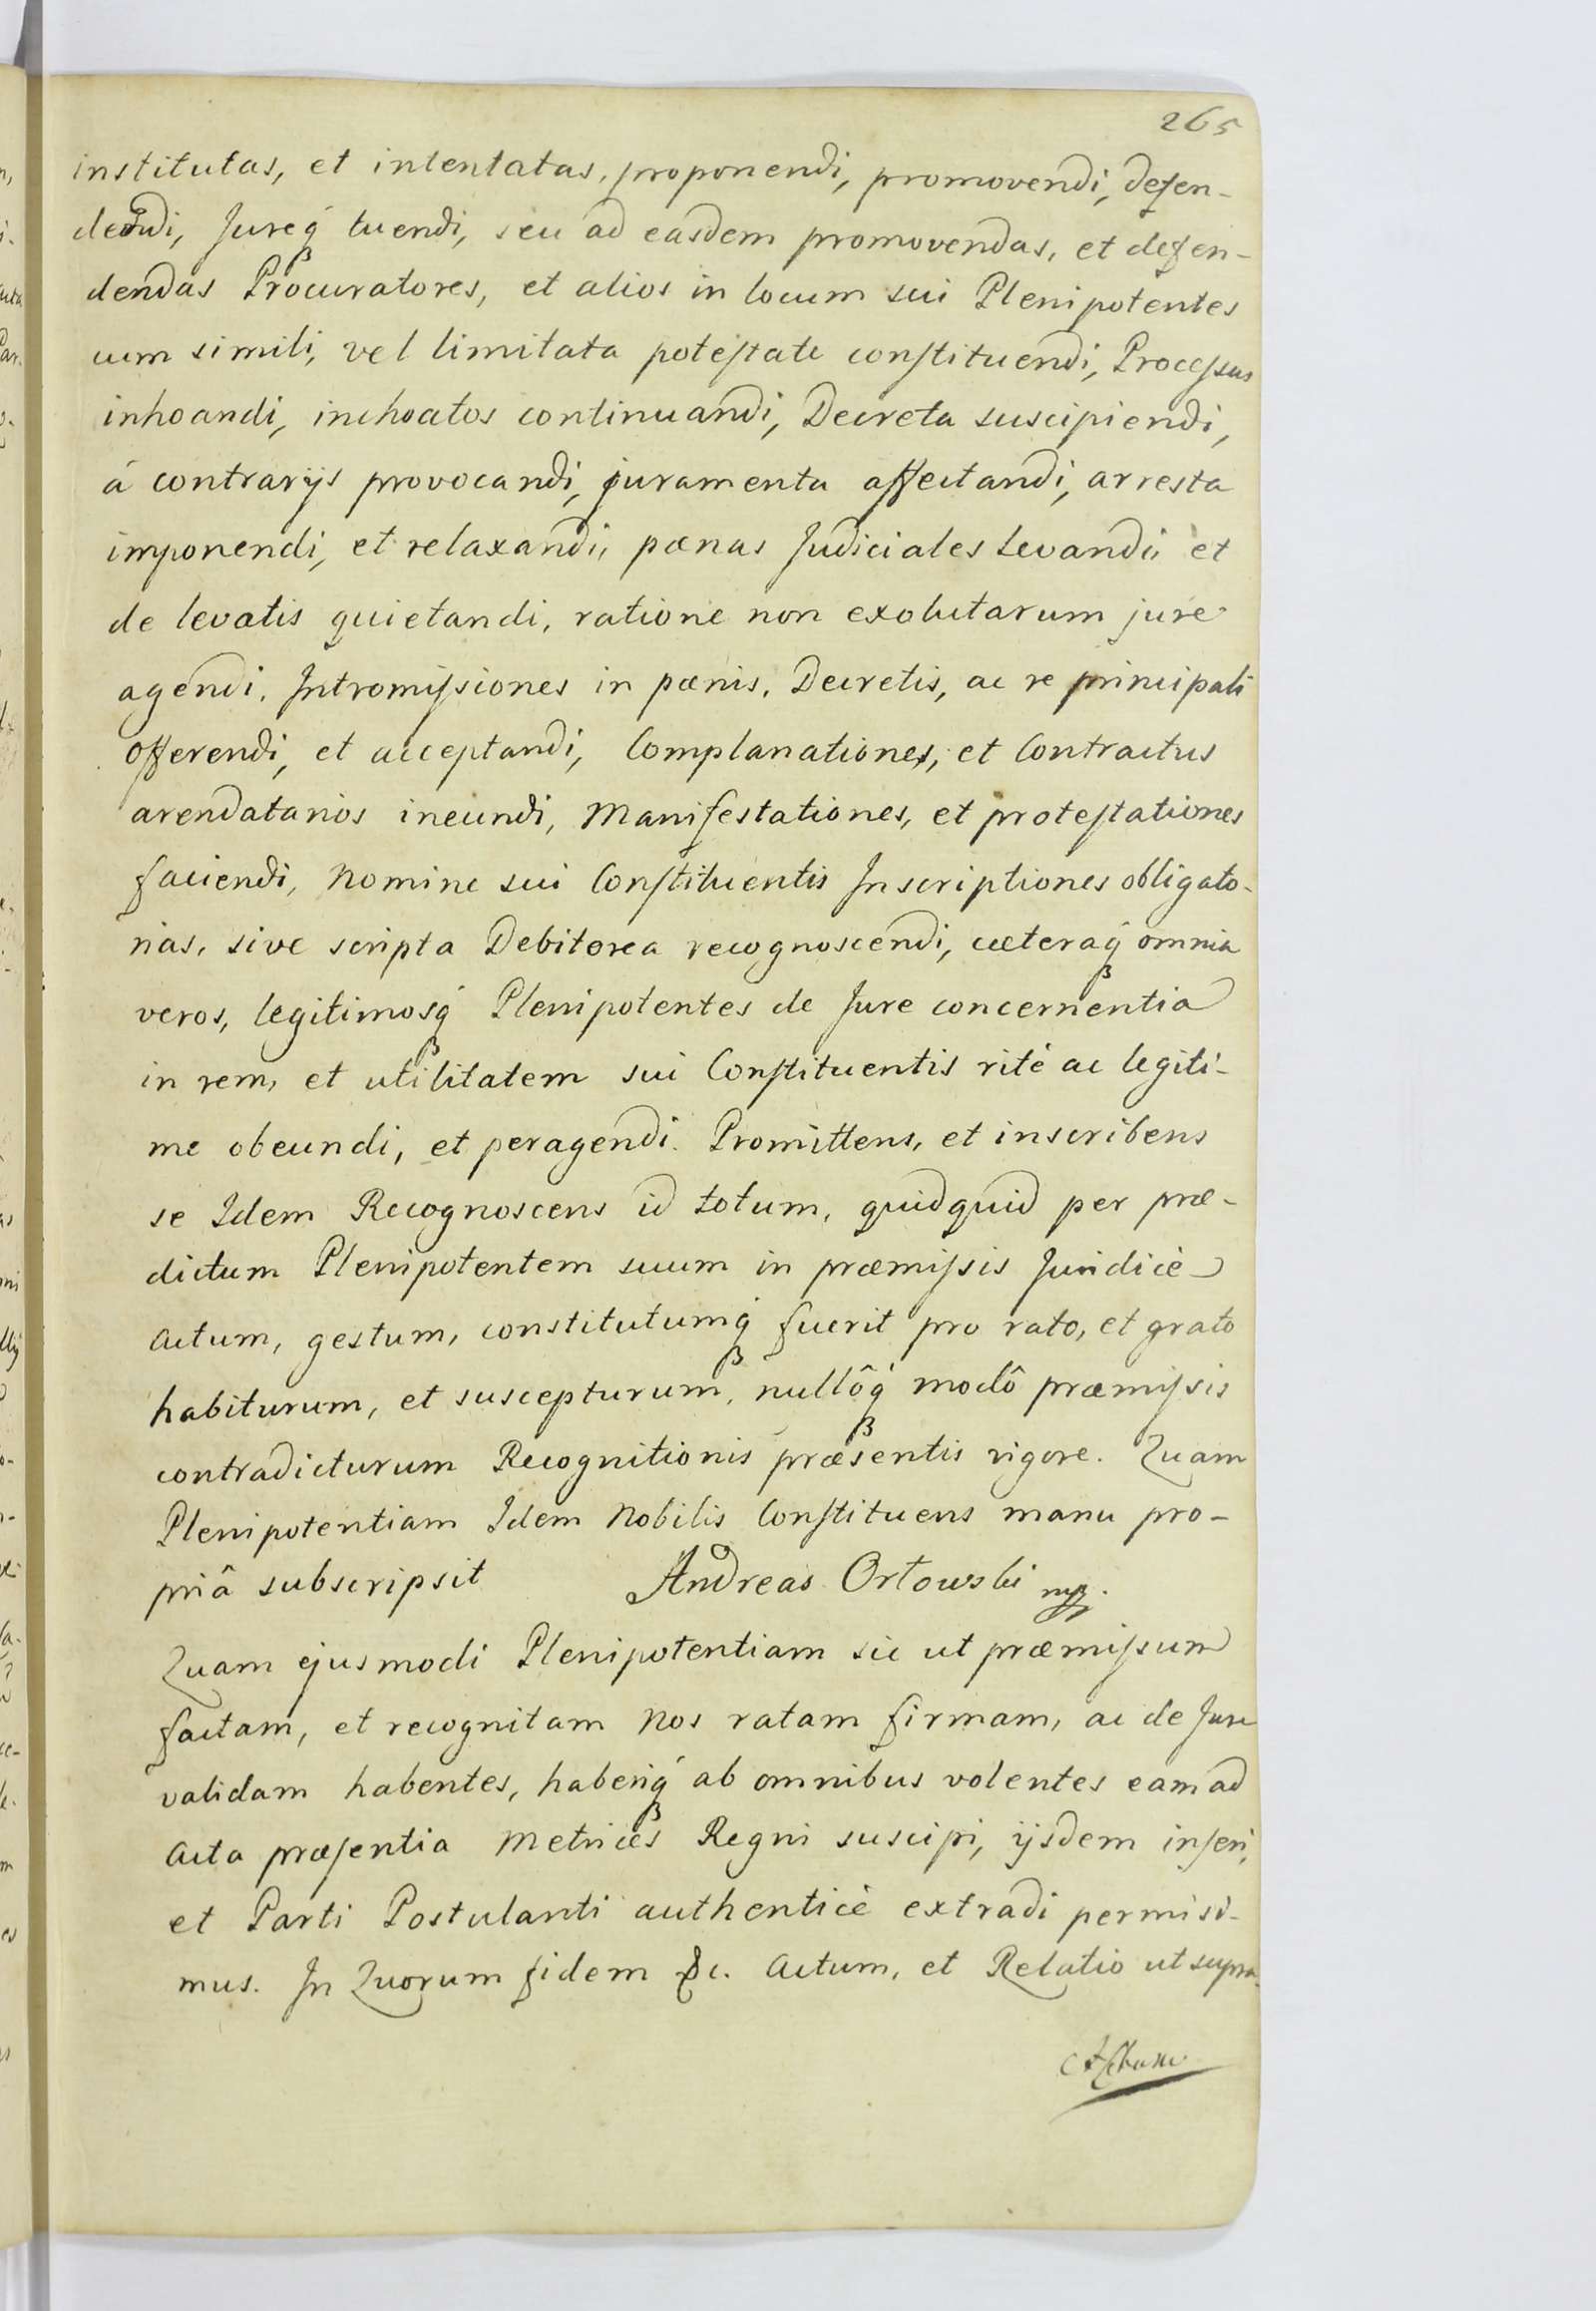 265
institutas, et intentatas, proponendi, promovendi, defen-
dendi, Jureq́ꝫ tuendi, seu ad easdem promovendas, et defen-
dendas Procuratores, et alios in locum sui Plenipotentes
cum simili, vel limitata potestate constituendi, Processus
inhoandi, inchoatos continuandi, Decreta suscipiendi,
á contrarijs provocandi, juramenta affectandi, arresta
imponendi, et relaxandi, pœnas Judiciales Levandi, et
de levatis quietandi, ratione non exolutarum jure
agendi, Intromissiones in pœnis, Decretis, ac re principali
offerendi, et acceptandi, Complanationes, et Contractus
arendatarios ineundi, Manifestationes, et protestationes
faciendi, Nomine sui Constituentis Inscriptiones obligato-
rias, sive scripta Debitorea recognoscendi, cæteraq́ꝫ omnia
veros, legitimosq́ꝫ Plenipotentes de Jure concernentia
in rem, et utilitatem sui Constituentis rité ac legiti-
me obeundi, et peragendi. Promittens, et inscribens
se Idem Recognoscens id totum, quidquid per præ-
dictum Plenipotentem suum in præmissis Juridicè
actum, gestum, constitutumq́ꝫ fuerit pro rato, et grato
habiturum, et suscepturum, nullôq́ꝫ modô præmissis
contradicturum Recognitionis præsentis vigore. Quam
Plenipotentiam Idem Nobilis Constituens manu pro-
priâ subscripsit Andreas Orłowski mp.
Quam ejusmodi Plenipotentiam sic ut præmissum
factam, et recognitam Nos ratam firmam, ac de Jure
validam habentes, haberiq́ꝫ ab omnibus volentes eam ad
Acta præsentia Metrices Regni suscipi, ijsdem inseri,
et Parti Postulanti authenticè extradi permisi-
mus. In Quorum fidem &c. Actum, et Relatio ut supra.